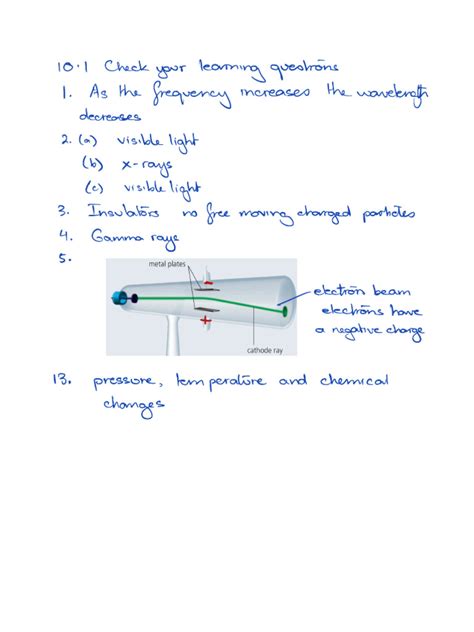 10.1 Check your learning questions
1. As the frequency increases the wavelength
decreases
2. (a) visible light
(b) x-rays
(c) visible light
3. Insulators no free moving charged particles
4. Gamma rays
5.
metal plates
-
+
cathode ray
electron beam
electrons have
a negative charge
13. pressure, temperature and chemical
changes